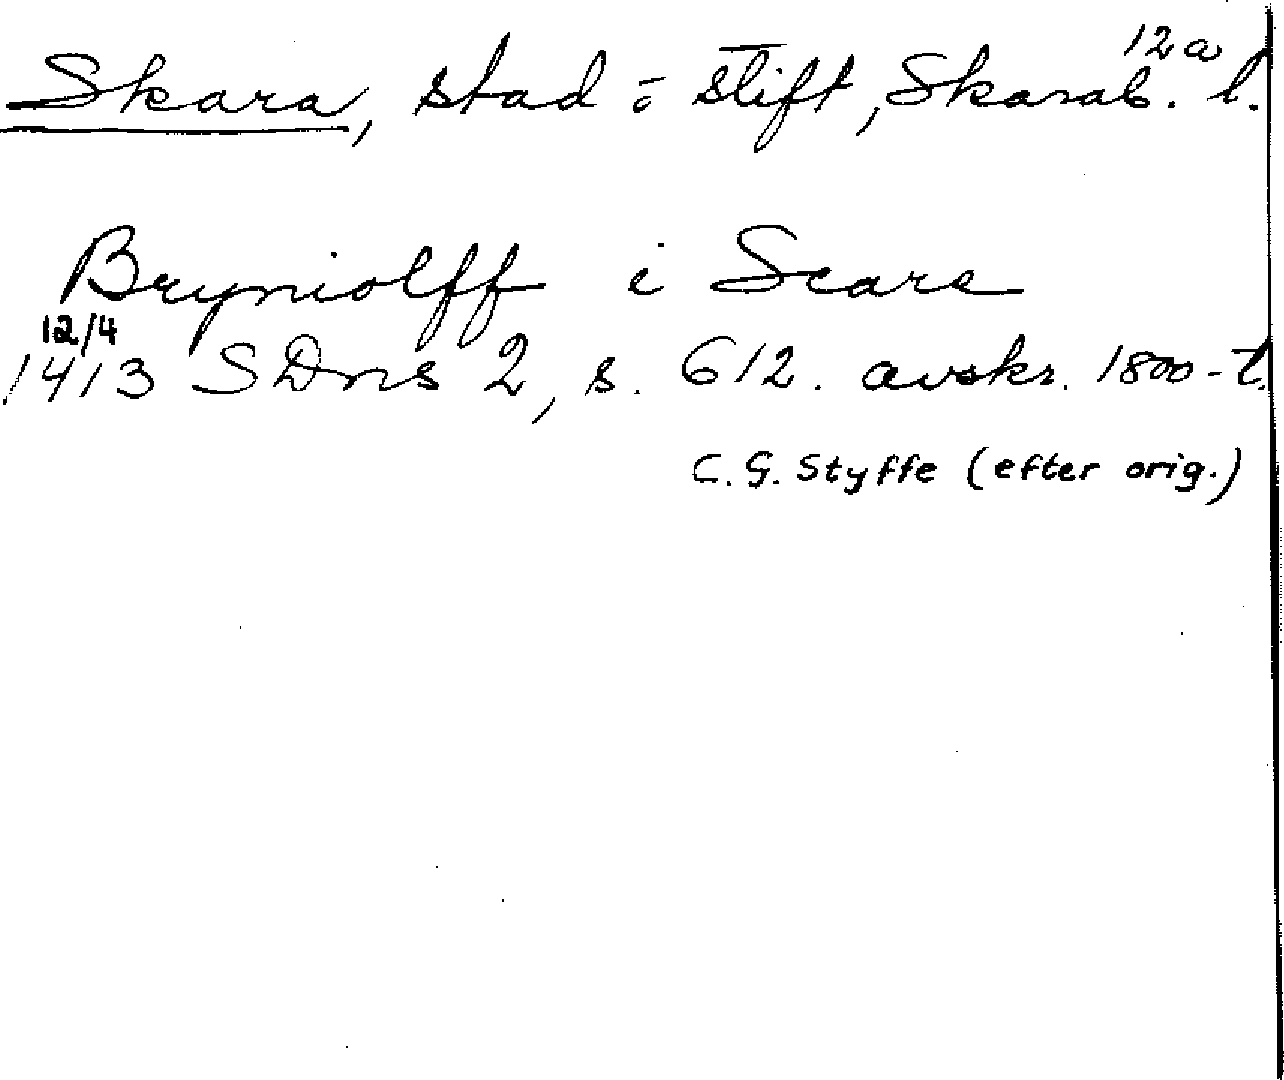 12a
Skara, stad o stift, Skarab. l.
Bryniolff i Scare
12/4
1413 SDns 2, s. 612. avskr. 1800-t.
C. G. Styffe (efter orig.)